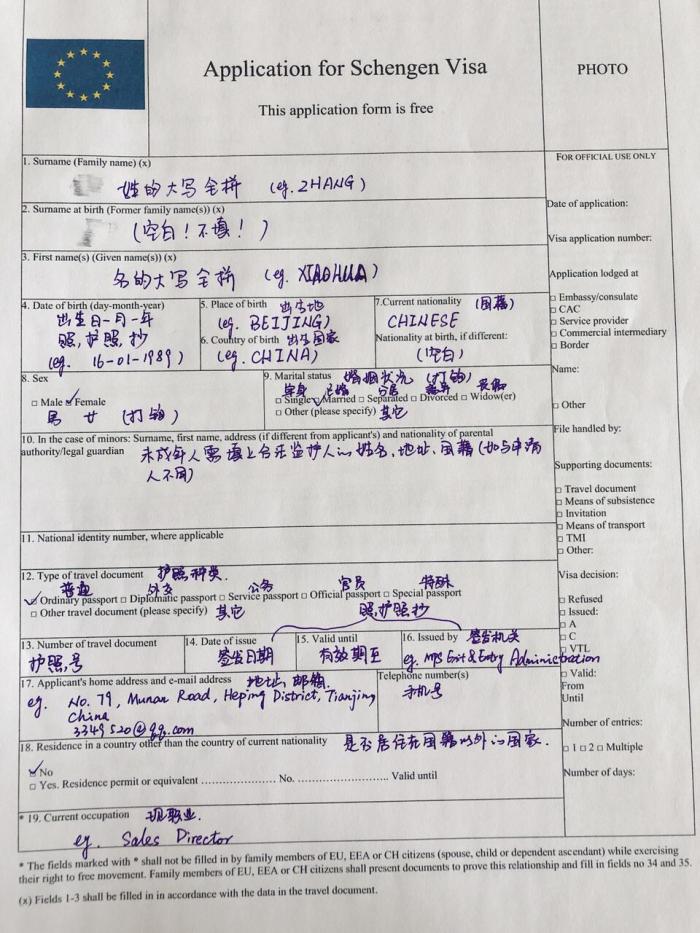 Application for Schengen Visa
This application form is free
PHOTO
1. Surname (Family name) (x)
姓的大写全拼 (eg. ZHANG)
2. Surname at birth (Former family name(s)) (x)
(空白！不填！)
3. First name(s) (Given name(s)) (x)
名的大写全拼 (eg. XIAOHUA)
4. Date of birth (day-month-year)
出生日-月-年
照,护照,抄
(eg. 16-01-1989)
5. Place of birth 出生地
(eg. BEIJING)
6. Country of birth 出生国家
(eg. CHINA)
7.Current nationality (国籍)
CHINESE
Nationality at birth, if different:
(空白)
8. Sex
□ Male ☑ Female
男 女 (打钩)
9. Marital status 婚姻状况 (打钩)
单身 已婚 分居 离异 丧偶
□ Single ☑ Married □ Separated □ Divorced □ Widow(er)
□ Other (please specify) 其它
10. In the case of minors: Surname, first name, address (if different from applicant's) and nationality of parental
authority/legal guardian 未成年人需填上合法监护人的姓名,地址,国籍(如与申请
人不同)
11. National identity number, where applicable
12. Type of travel document 护照种类.
普通 外交 公务 官员 特殊
☑ Ordinary passport □ Diplomatic passport □ Service passport □ Official passport □ Special passport
□ Other travel document (please specify) 其它
照,护照抄
13. Number of travel document
护照,号
14. Date of issue
签发日期
15. Valid until
有效期至
16. Issued by 签发机关
eg. MPS Exit & Entry Administration
17. Applicant's home address and e-mail address 地址,邮箱.
eg. No. 79, Munan Road, Heping District, Tianjing
China
3349520@qq.com
Telephone number(s)
手机号
18. Residence in a country other than the country of current nationality 是否居住在国籍以外的国家.
☑ No
□ Yes. Residence permit or equivalent ........................ No. ............................. Valid until
* 19. Current occupation 现职业.
eg. Sales Director
* The fields marked with * shall not be filled in by family members of EU, EEA or CH citizens (spouse, child or dependent ascendant) while exercising
their right to free movement. Family members of EU, EEA or CH citizens shall present documents to prove this relationship and fill in fields no 34 and 35.
(x) Fields 1-3 shall be filled in in accordance with the data in the travel document.
FOR OFFICIAL USE ONLY
Date of application:
Visa application number:
Application lodged at
□ Embassy/consulate
□ CAC
□ Service provider
□ Commercial intermediary
□ Border
Name:
□ Other
File handled by:
Supporting documents:
□ Travel document
□ Means of subsistence
□ Invitation
□ Means of transport
□ TMI
□ Other:
Visa decision:
□ Refused
□ Issued:
□ A
□ C
□ VTL
□ Valid:
From
Until
Number of entries:
□ 1 □ 2 □ Multiple
Number of days: